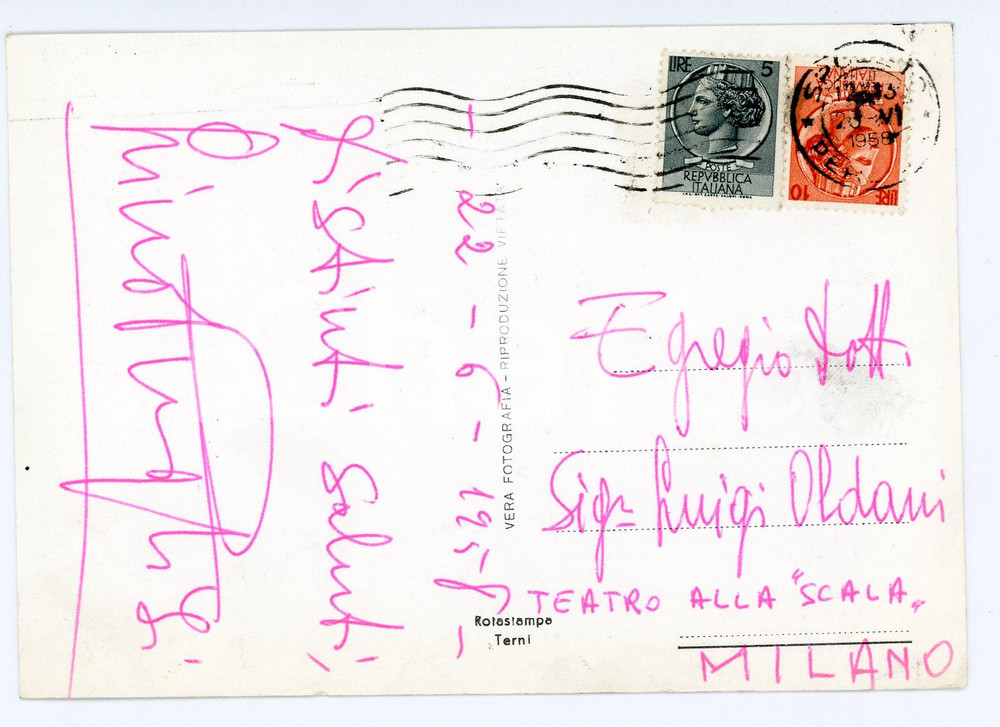 - 22 - 6 - 1958 -
Distinti saluti,
LIRE 5
POSTE
REPVBBLICA
ITALIANA
LIRE 10
1958
VERA FOTOGRAFIA - RIPRODUZIONE VIETA
Egregio Dott.
Sigr Luigi Oldani
TEATRO ALLA "SCALA"
MILANO
Rotastampa
Terni